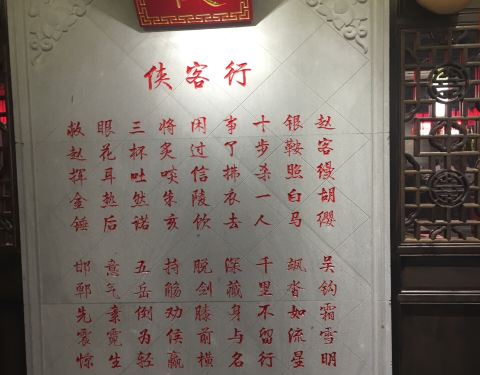 侠客行
赵客缦胡缨
吴钩霜雪明
银鞍照白马
飒沓如流星
十步杀一人
千里不留行
事了拂衣去
深藏身与名
闲过信陵饮
脱剑膝前横
将炙啖朱亥
持觞劝侯嬴
三杯吐然诺
五岳倒为轻
眼花耳热后
意气素霓生
救赵挥金锤
邯郸先震惊